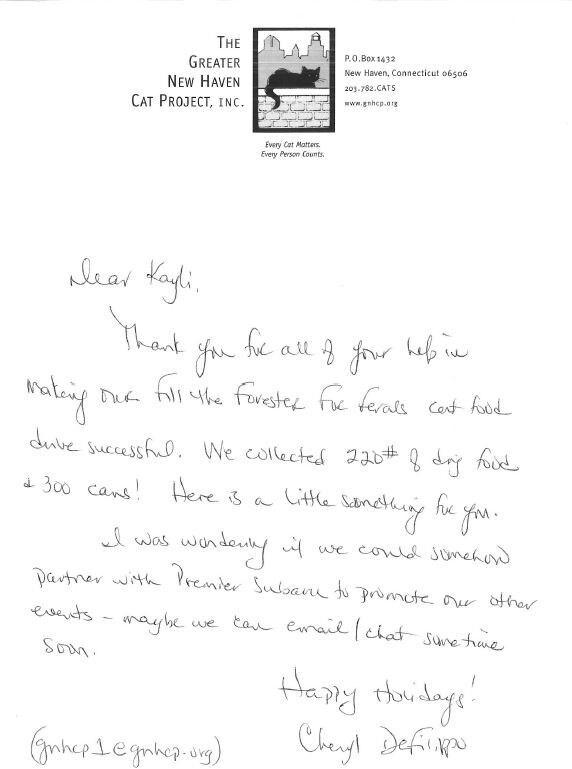 THE
GREATER
NEW HAVEN
CAT PROJECT, INC.
P.O.Box 1432
New Haven, Connecticut 06506
203.782.CATS
www.gnhcp.org
Every Cat Matters.
Every Person Counts.
Dear Kayli,
Thank you for all of your help in
making our Fill the Forester For Ferals cat food
drive successful. We collected 220# of dry food
& 300 cans! Here is a little something for you.
I was wondering if we could somehow
partner with Premier Subaru to promote our other
events – maybe we can email/chat sometime
soon.
Happy Holidays!
Cheryl DeFilippo
(gnhcp1@gnhcp.org)